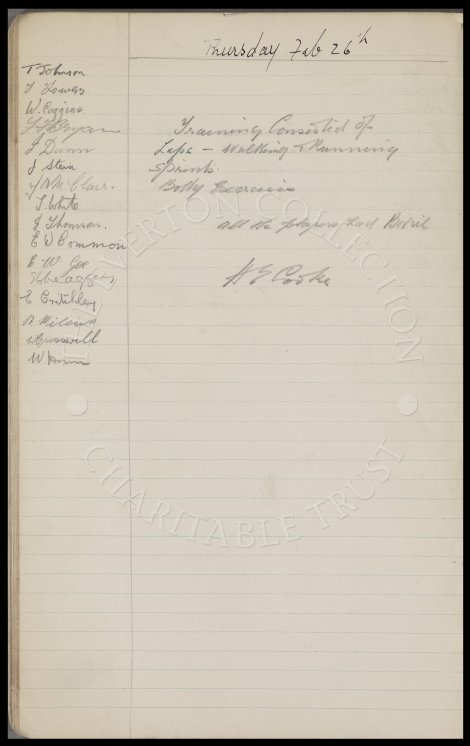 Thursday Feb 26th
T Johnson
T Lowers
W. Coggins
Bryan
J Dunn
J Stein
Clare.
T. White
J Thomson.
E W Common
C W Gee
E Critchley
A Wilson
W Cresswell
W Dunn
Training Consisted of
Laps – Walking & Running
Sprints.
Body Exercises
all the players had Bovril
H E Cooke
THE EVERTON COLLECTION
CHARITABLE TRUST